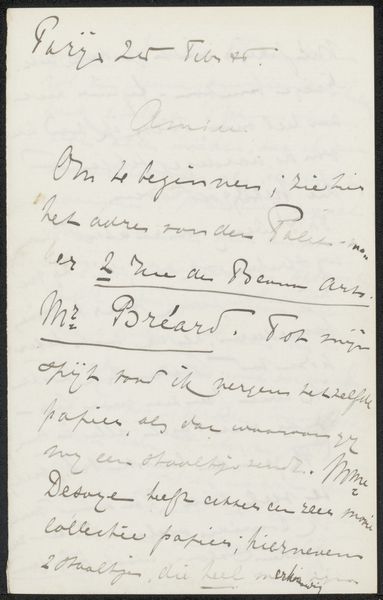 Parijs 25 Febr 85.
Amice.
Om te beginnen; zie hier
het adres van den Poliss-
er 2 Rue de Beaux Arts.
Mr Bréard. Tot mijn
spijt vond ik nergens hetzelfde
papier, als dat waarvan gij
mij een staaltje zendt. Mme
Desoye heeft echter een zeer mooie
collectie papier; hiernevens
2 staaltjes, die heel